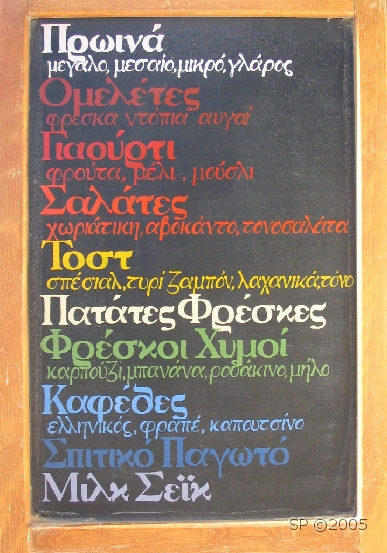 Πρωινά
μεγάλο, μεσαίο, μικρό, γλάρος
Ομελέτες
φρέσκα ντόπια αυγά
Γιαούρτι
φρούτα, μέλι, μούσλι
Σαλάτες
χωριάτικη, αβοκάντο, τονοσαλάτα
Τοστ
σπέσιαλ, τυρί ζαμπόν, λαχανικά, τόνο
Πατάτες Φρέσκες
Φρέσκοι Χυμοί
καρπούζι, μπανάνα, ροδάκινο, μήλο
Καφέδες
ελληνικός, φραπέ, καπουτσίνο
Σπιτικό Παγωτό
Μιλκ Σεϊκ
SP ©2005